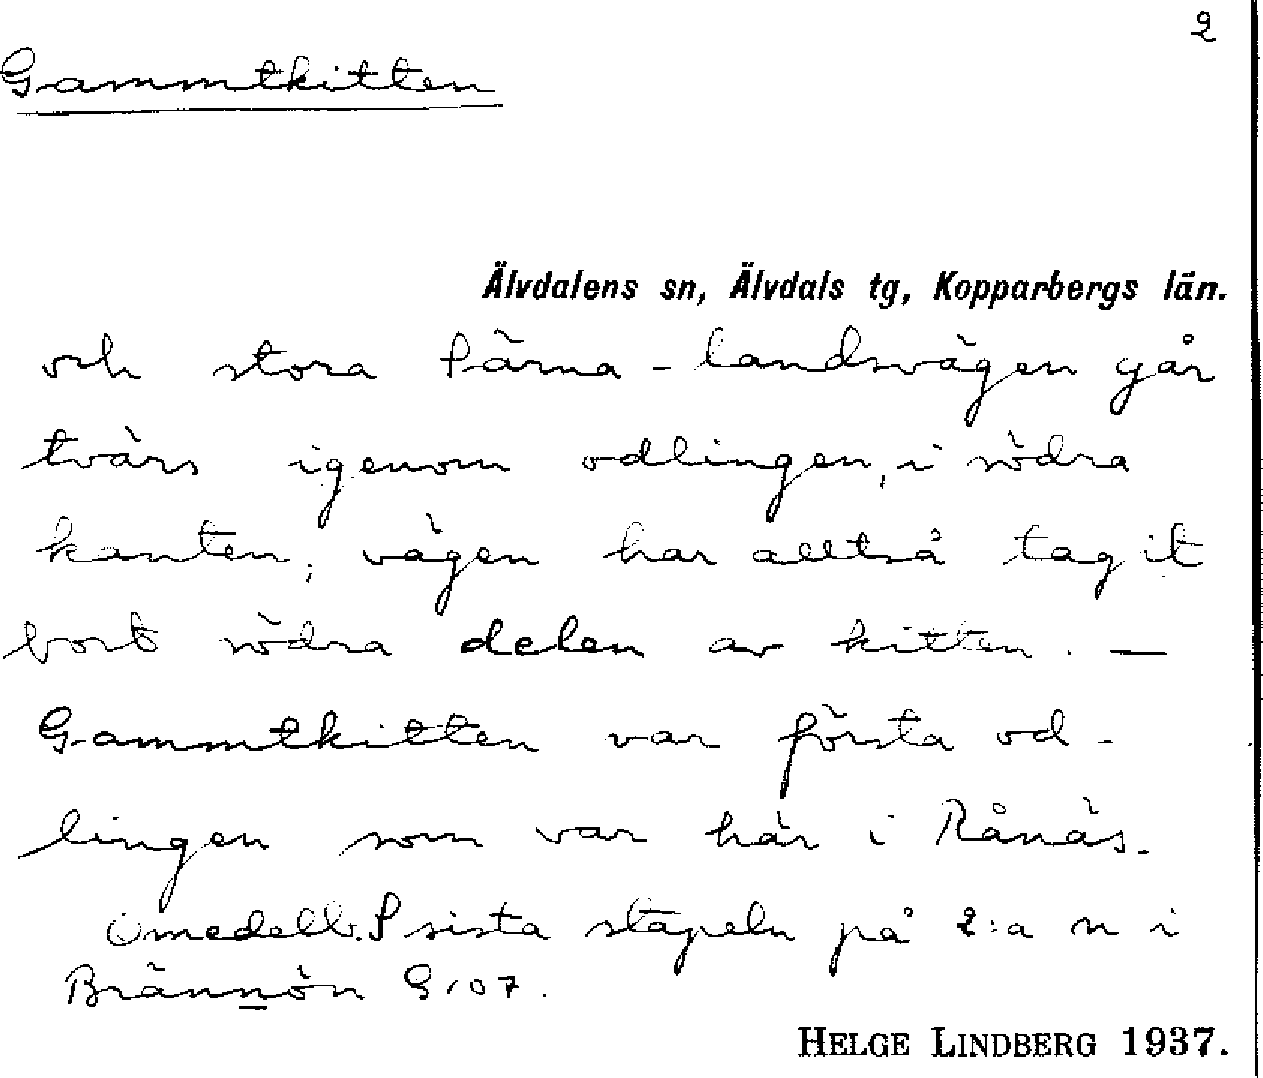 2
Gammtkitten
Älvdalens sn, Älvdals tg, Kopparbergs län.
och stora Särna-landsvägen går
tvärs igenom odlingen, i södra
kanten, vägen har alltså tagit
bort södra delen av kitten. —
Gammtkitten var första od-
lingen som var här i Rånäs.
Omedelb. S sista stapeln på 2:a n i
Brännön G 107.
HELGE LINDBERG 1937.